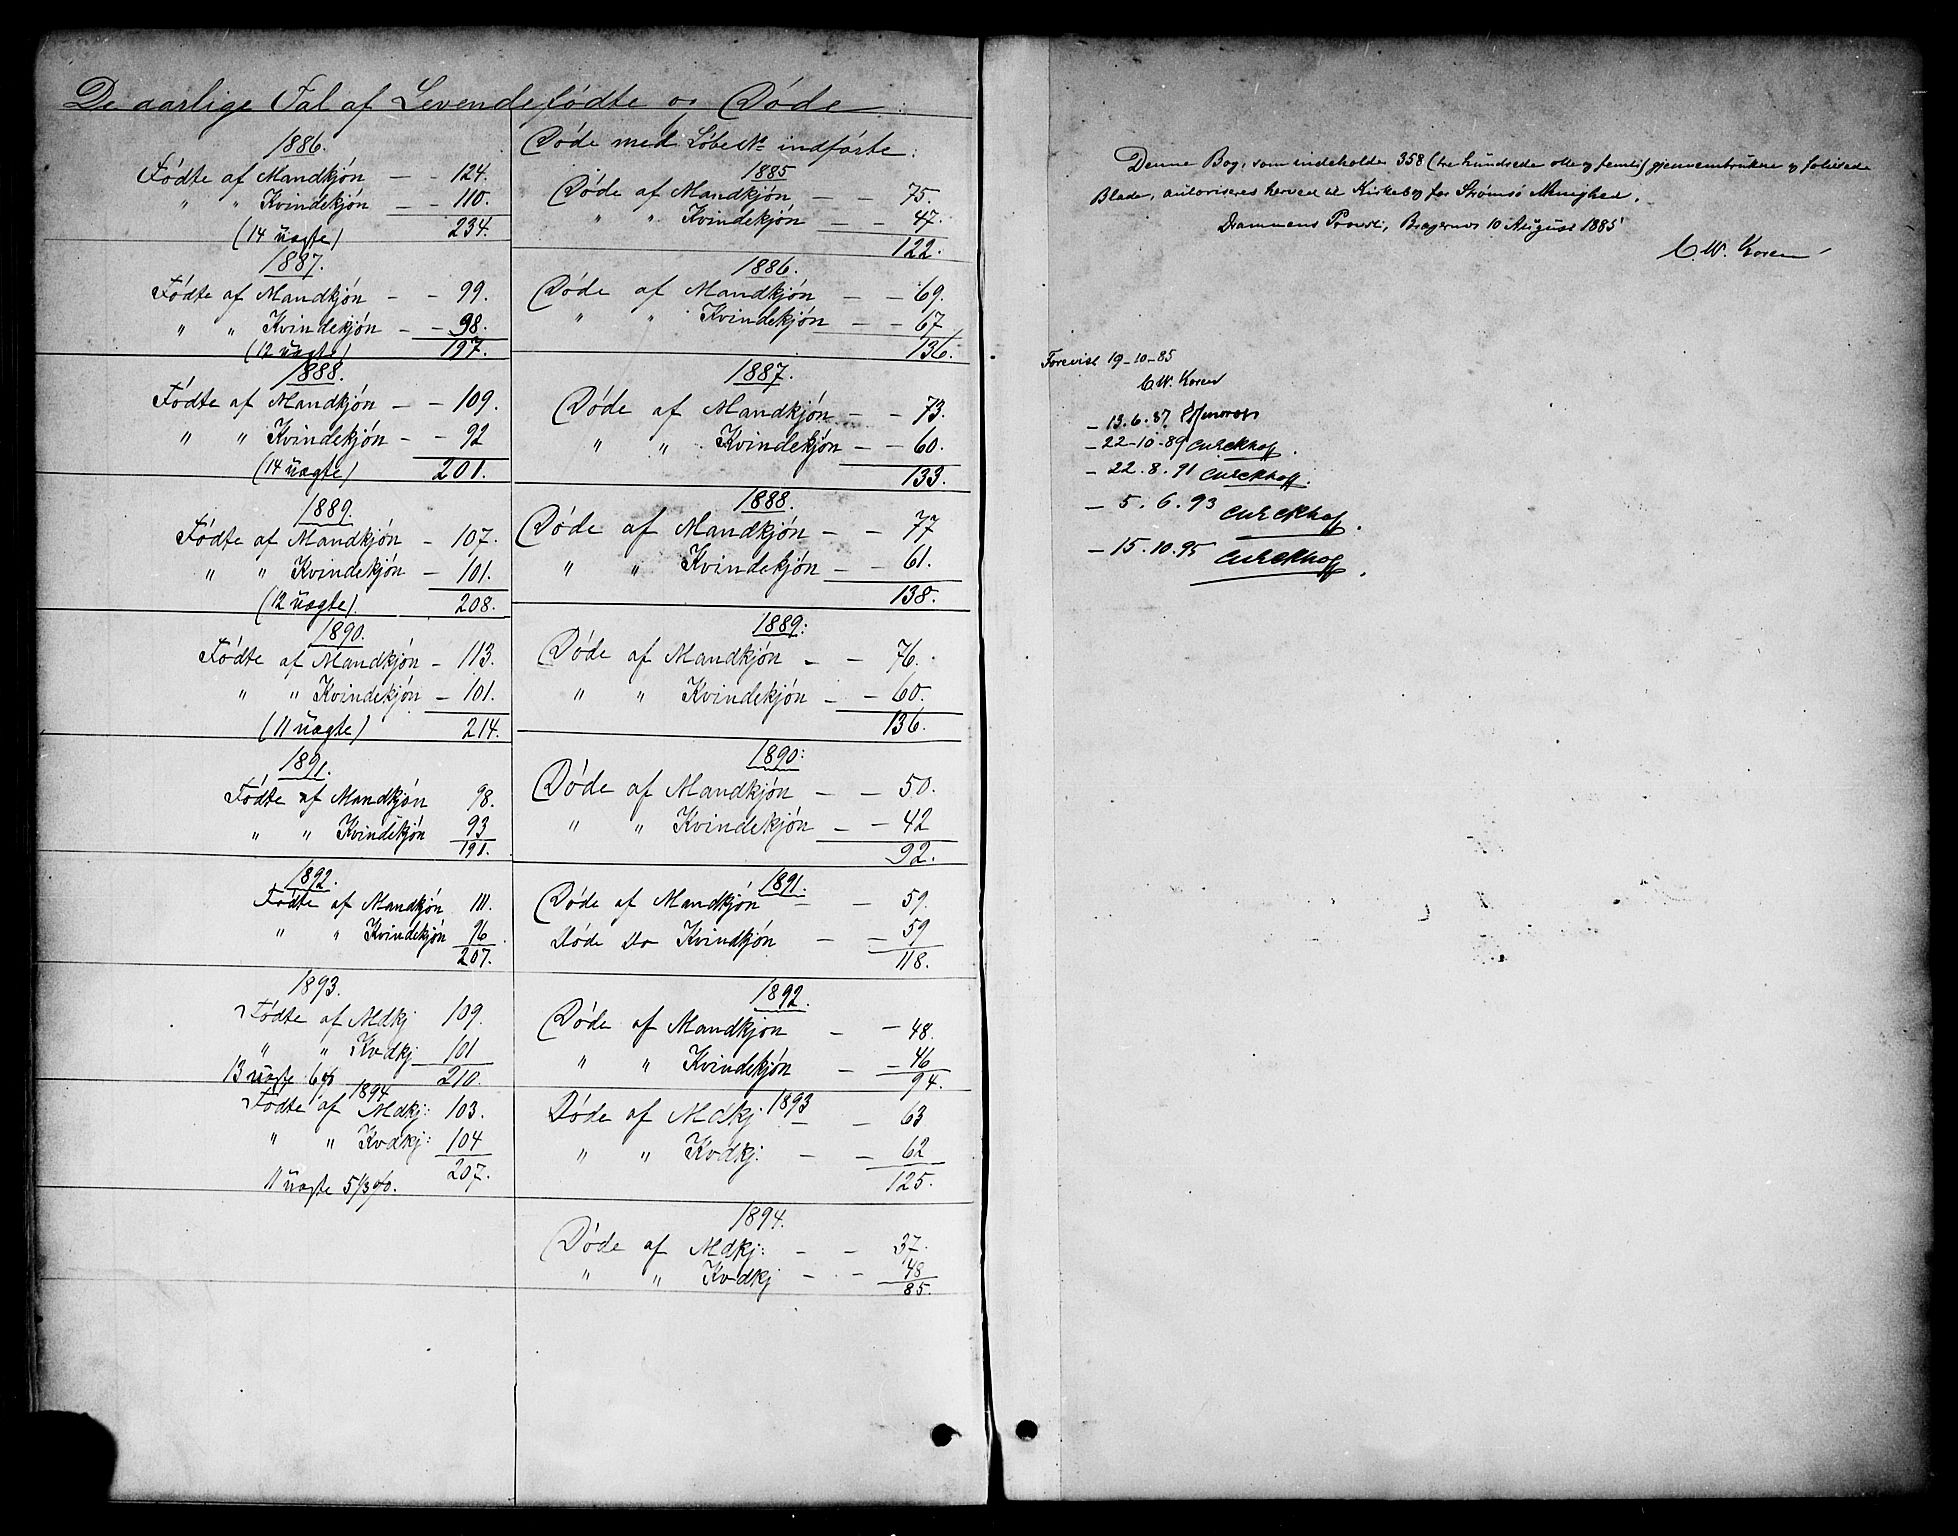 De aarlige Tal af Levendefødte og Døde
1886.
Fødte af Mandkjøn — - 124.
" " Kvindekjøn — - 110.
(14 uægte) 234.
1887.
Fødte af Mandkjøn — - 99.
" " Kvindekjøn — - 98.
(12 uægte) 197.
1888.
Fødte af Mandkjøn — - 109.
" " Kvindekjøn — - 92
(14 uægte) 201.
1889.
Fødte af Mandkjøn — 107.
" " Kvindekjøn — 101.
(12 uægte) 208.
1890.
Fødte af Mandkjøn — 113.
" " Kvindekjøn — 101.
(11 uægte) 214.
1891.
Fødte af Mandkjøn 98.
" " Kvindekjøn 93
191.
1892.
Fødte af Mandkjøn 111.
" " Kvindekjøn 96.
207.
1893.
Fødte af Mdkj 109.
" " Kvdkj 101
13 uægte 210.
1894
Fødte af Mdkj: 103.
" " Kvdkj: 104
207.
11 uægte
Døde med Løbe No indførte:
1885
Døde af Mandkjøn — - 75.
" " Kvindekjøn — - 47.
122.
1886.
Døde af Mandkjøn — - 69.
" " Kvindekjøn — - 67
136.
1887.
Døde af Mandkjøn — - 73.
" " Kvindekjøn — - 60.
133.
1888.
Døde af Mandkjøn — - 77
" " Kvindekjøn — - 61.
138.
1889:
Døde af Mandkjøn — - 76.
" " Kvindekjøn — - 60.
136.
1890:
Døde af Mandkjøn — - 50.
" " Kvindekjøn — - 42
92.
1891.
Døde af Mandkjøn — - 59.
Døde Do Kvindkjøn — - 59
118.
1892.
Døde af Mandkjøn — - 48.
" " Kvindekjøn — - 46
94.
1893
Døde af Mdkj. — - 63
" " Kvdkj. — - 62
125.
1894.
Døde af Mdkj: — - 37.
" " Kvdkj — - 48
85.
Denne Bog, som indeholder 358 (tre hundrede otte og femti) gjennemtrukne og folierede
Blade, autoriseres herved til Kirkebog for Strømsø Menighed.
Drammens Provsti, Bragernes 10 August 1885
C. W. Koren
Forevist 19-10-85
C W. Koren
- 13.6.87
- 22-10-89
- 22.8.91
- 5.6.93
- 15.10.95